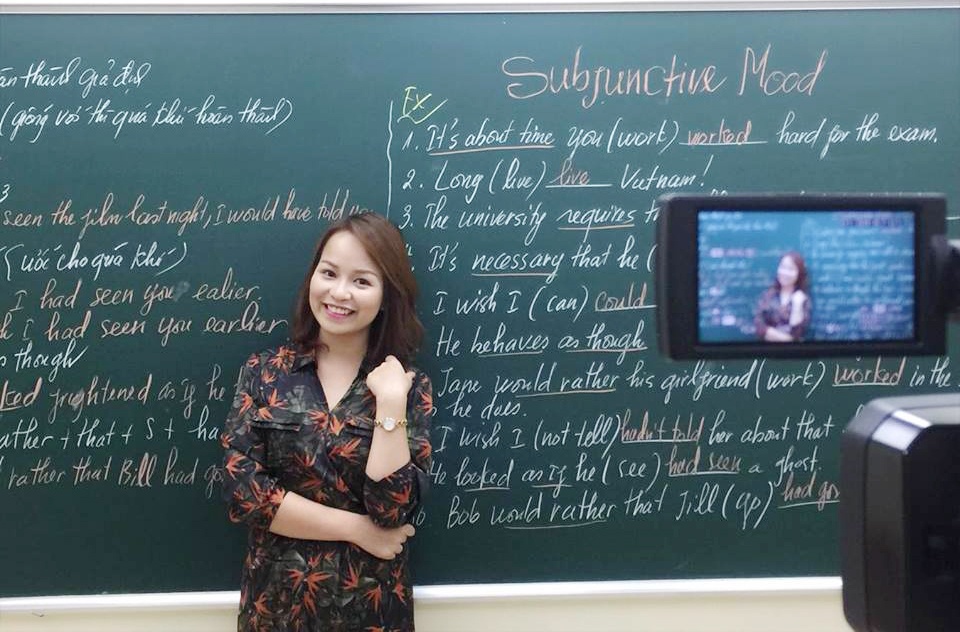 thành giả định
(giống với thì quá khứ hoàn thành)
3
seen the film last night, I would have told
(ước cho quá khứ)
I had seen you ealier.
I had seen you earlier
though
frightened as if he
ather + that + S + ha
rather that Bill had go
Subjunctive Mood
Ex
1. It's about time you (work) worked hard for the exam.
2. Long (live) live Vietnam!
3. The university requires
It's necessary that he (
I wish I (can) could
He behaves as though
Jane would rather his girlfriend (work) worked in the
he does.
I wish I (not tell) hadn't told her about that
He looked as if he (see) had seen a ghost.
10. Bob would rather that Jill (go) had gon